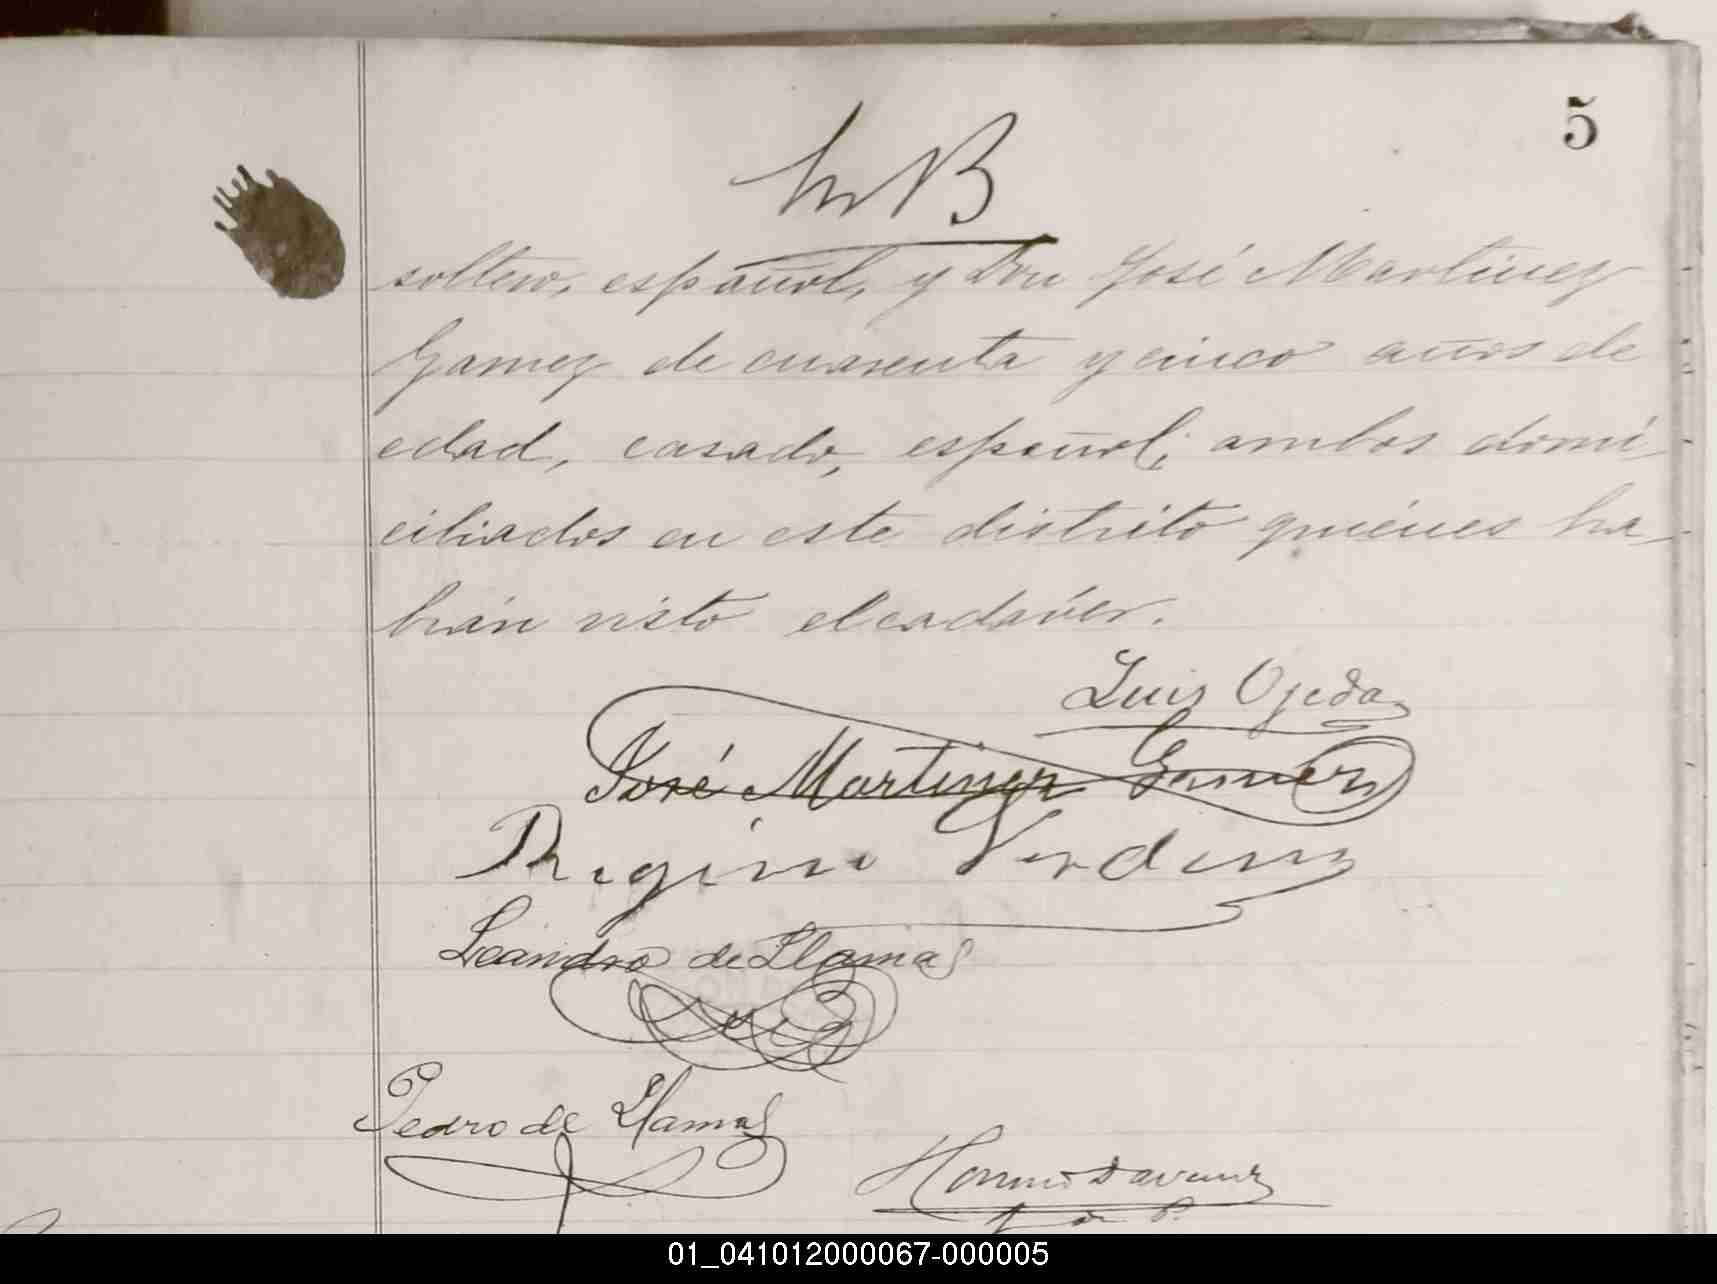 5
soltero, español, y Don José Martinez
Gamez de cuarenta y cinco años de
edad, casado, español; ambos domi-
ciliados en este distrito quiénes ha-
brán visto el cadáver.
Luis Ojeda
José Martinez Gamez
Leandro de Llamas
Pedro de Llamas
01_041012000067-000005